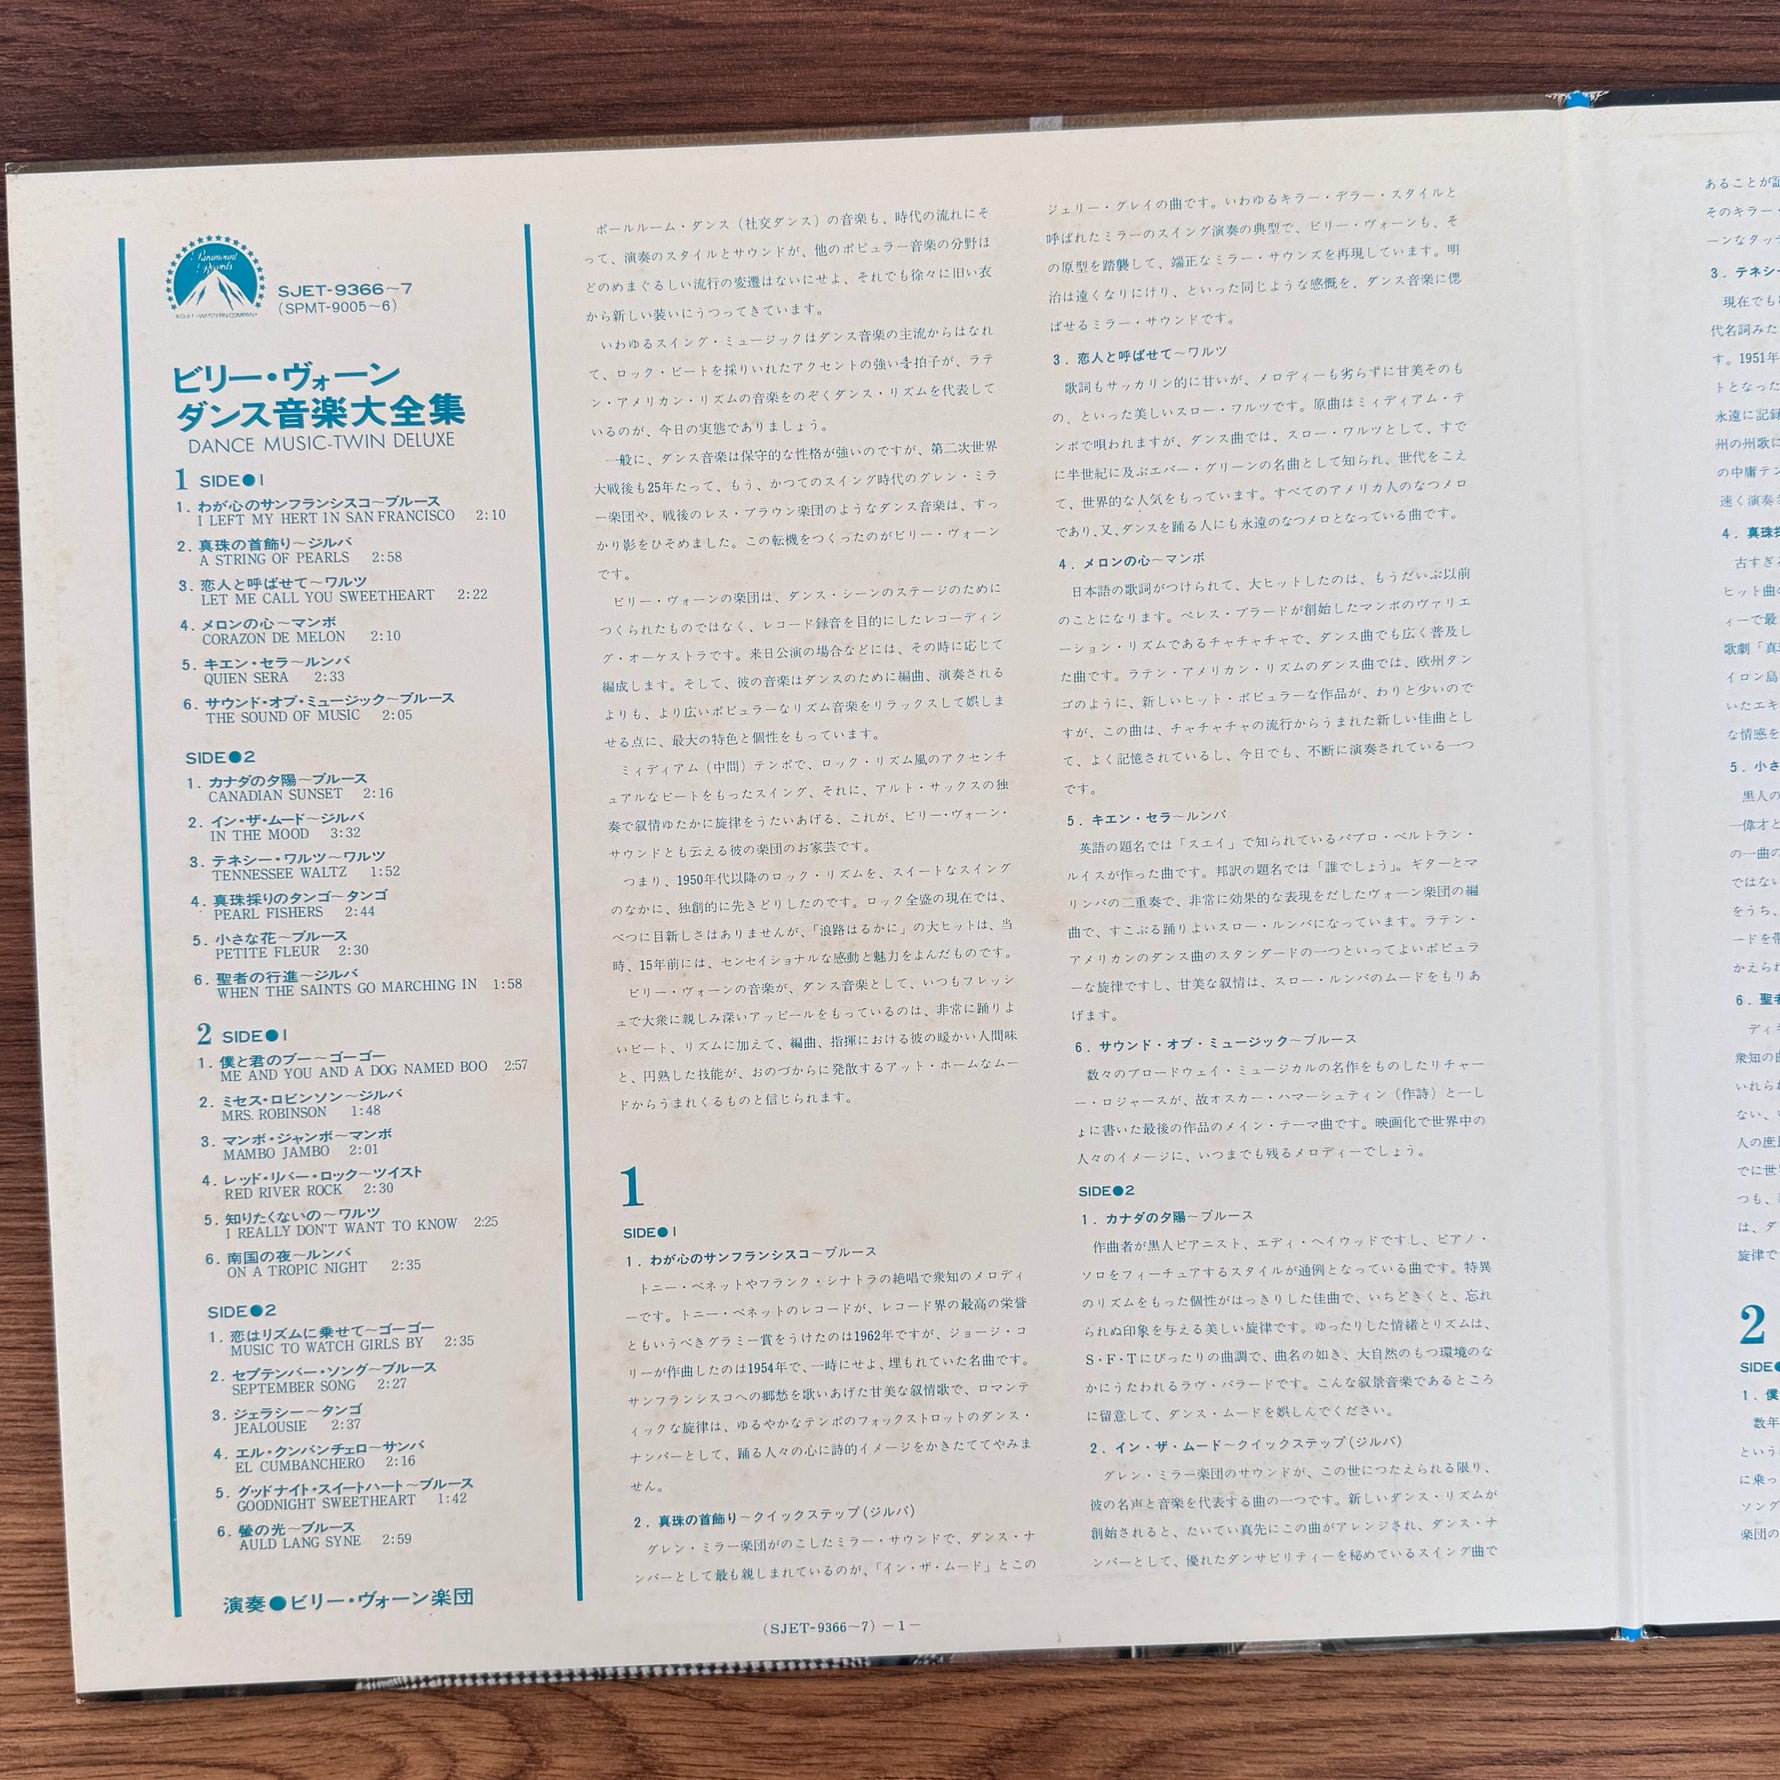 Paramount
Records
A GULF+WESTERN COMPANY
SJET-9366~7
(SPMT-9005~6)
ビリー・ヴォーン
ダンス音楽大全集
DANCE MUSIC-TWIN DELUXE
1 SIDE●1
1. わが心のサンフランシスコ～ブルース
I LEFT MY HERT IN SAN FRANCISCO 2:10
2. 真珠の首飾り～ジルバ
A STRING OF PEARLS 2:58
3. 恋人と呼ばせて～ワルツ
LET ME CALL YOU SWEETHEART 2:22
4. メロンの心～マンボ
CORAZON DE MELON 2:10
5. キエン・セラ～ルンバ
QUIEN SERA 2:33
6. サウンド・オブ・ミュージック～ブルース
THE SOUND OF MUSIC 2:05
SIDE●2
1. カナダの夕陽～ブルース
CANADIAN SUNSET 2:16
2. イン・ザ・ムード～ジルバ
IN THE MOOD 3:32
3. テネシー・ワルツ～ワルツ
TENNESSEE WALTZ 1:52
4. 真珠採りのタンゴ～タンゴ
PEARL FISHERS 2:44
5. 小さな花～ブルース
PETITE FLEUR 2:30
6. 聖者の行進～ジルバ
WHEN THE SAINTS GO MARCHING IN 1:58
2 SIDE●1
1. 僕と君のブー～ゴーゴー
ME AND YOU AND A DOG NAMED BOO 2:57
2. ミセス・ロビンソン～ジルバ
MRS. ROBINSON 1:48
3. マンボ・ジャンボ～マンボ
MAMBO JAMBO 2:01
4. レッド・リバー・ロック～ツイスト
RED RIVER ROCK 2:30
5. 知りたくないの～ワルツ
I REALLY DON'T WANT TO KNOW 2:25
6. 南国の夜～ルンバ
ON A TROPIC NIGHT 2:35
SIDE●2
1. 恋はリズムに乗せて～ゴーゴー
MUSIC TO WATCH GIRLS BY 2:35
2. セプテンバー・ソング～ブルース
SEPTEMBER SONG 2:27
3. ジェラシー～タンゴ
JEALOUSIE 2:37
4. エル・クンバンチェロ～サンバ
EL CUMBANCHERO 2:16
5. グッドナイト・スイートハート～ブルース
GOODNIGHT SWEETHEART 1:42
6. 螢の光～ブルース
AULD LANG SYNE 2:59
演奏●ビリー・ヴォーン楽団
ボールルーム・ダンス（社交ダンス）の音楽も、時代の流れにそ
って、演奏のスタイルとサウンドが、他のポピュラー音楽の分野ほ
どのめまぐるしい流行の変遷はないにせよ、それでも徐々に旧い衣
から新しい装いにうつってきています。
いわゆるスイング・ミュージックはダンス音楽の主流からはなれ
て、ロック・ビートを採りいれたアクセントの強い4拍子が、ラテ
ン・アメリカン・リズムの音楽をのぞくダンス・リズムを代表して
いるのが、今日の実態でありましょう。
一般に、ダンス音楽は保守的な性格が強いのですが、第二次世界
大戦後も25年たって、もう、かつてのスイング時代のグレン・ミラ
ー楽団や、戦後のレス・ブラウン楽団のようなダンス音楽は、すっ
かり影をひそめました。この転機をつくったのがビリー・ヴォーン
です。
ビリー・ヴォーンの楽団は、ダンス・シーンのステージのために
つくられたものではなく、レコード録音を目的にしたレコーディン
グ・オーケストラです。来日公演の場合などには、その時に応じて
編成します。そして、彼の音楽はダンスのために編曲、演奏される
よりも、より広いポピュラーなリズム音楽をリラックスして娯しま
せる点に、最大の特色と個性をもっています。
ミィディアム（中間）テンポで、ロック・リズム風のアクセンチ
ュアルなビートをもったスイング、それに、アルト・サックスの独
奏で叙情ゆたかに旋律をうたいあげる、これが、ビリー・ヴォーン・
サウンドとも云える彼の楽団のお家芸です。
つまり、1950年代以降のロック・リズムを、スイートなスイング
のなかに、独創的に先きどりしたのです。ロック全盛の現在では、
べつに目新しさはありませんが、「浪路はるかに」の大ヒットは、当
時、15年前には、センセイショナルな感動と魅力をよんだものです。
ビリー・ヴォーンの音楽が、ダンス音楽として、いつもフレッシ
ュで大衆に親しみ深いアッピールをもっているのは、非常に踊りよ
いビート、リズムに加えて、編曲、指揮における彼の暖かい人間味
と、円熟した技能が、おのづからに発散するアット・ホームなムー
ドからうまれくるものと信じられます。
1
SIDE●1
1. わが心のサンフランシスコ～ブルース
トニー・ベネットやフランク・シナトラの絶唱で衆知のメロディ
ーです。トニー・ベネットのレコードが、レコード界の最高の栄誉
ともいうべきグラミー賞をうけたのは1962年ですが、ジョージ・コ
リーが作曲したのは1954年で、一時にせよ、埋もれていた名曲です。
サンフランシスコへの郷愁を歌いあげた甘美な叙情歌で、ロマンテ
ィックな旋律は、ゆるやかなテンポのフォックストロットのダンス・
ナンバーとして、踊る人々の心に詩的イメージをかきたててやみま
せん。
2. 真珠の首飾り～クイックステップ(ジルバ)
グレン・ミラー楽団がのこしたミラー・サウンドで、ダンス・ナ
ンバーとして最も親しまれているのが、「イン・ザ・ムード」とこの
ジェリー・グレイの曲です。いわゆるキラー・デラー・スタイルと
呼ばれたミラーのスイング演奏の典型で、ビリー・ヴォーンも、そ
の原型を踏襲して、端正なミラー・サウンズを再現しています。明
治は遠くなりにけり、といった同じような感慨を、ダンス音楽に偲
ばせるミラー・サウンドです。
3. 恋人と呼ばせて～ワルツ
歌詞もサッカリン的に甘いが、メロディーも劣らずに甘美そのも
の、といった美しいスロー・ワルツです。原曲はミィディアム・テ
ンポで唄われますが、ダンス曲では、スロー・ワルツとして、すで
に半世紀に及ぶエバー・グリーンの名曲として知られ、世代をこえ
て、世界的な人気をもっています。すべてのアメリカ人のなつメロ
であり、又、ダンスを踊る人にも永遠のなつメロとなっている曲です。
4. メロンの心～マンボ
日本語の歌詞がつけられて、大ヒットしたのは、もうだいぶ以前
のことになります。ペレス・プラードが創始したマンボのヴァリエ
ーション・リズムであるチャチャチャで、ダンス曲でも広く普及し
た曲です。ラテン・アメリカン・リズムのダンス曲では、欧州タン
ゴのように、新しいヒット・ポピュラーな作品が、わりと少いので
すが、この曲は、チャチャチャの流行からうまれた新しい佳曲とし
て、よく記憶されているし、今日でも、不断に演奏されている一つ
です。
5. キエン・セラ～ルンバ
英語の題名では「スエイ」で知られているパブロ・ベルトラン・
ルイスが作った曲です。邦訳の題名では「誰でしょう」。ギターとマ
リンバの二重奏で、非常に効果的な表現をだしたヴォーン楽団の編
曲で、すこぶる踊りよいスロー・ルンバになっています。ラテン・
アメリカンのダンス曲のスタンダードの一つといってよいポピュラ
ーな旋律ですし、甘美な叙情は、スロー・ルンバのムードをもりあ
げます。
6. サウンド・オブ・ミュージック～ブルース
数々のブロードウェイ・ミュージカルの名作をものしたリチャー
ー・ロジャースが、故オスカー・ハマーシュティン（作詩）と一し
ょに書いた最後の作品のメイン・テーマ曲です。映画化で世界中の
人々のイメージに、いつまでも残るメロディーでしょう。
SIDE●2
1. カナダの夕陽～ブルース
作曲者が黒人ピアニスト、エディ・ヘイウッドですし、ピアノ・
ソロをフィーチュアするスタイルが通例となっている曲です。特異
のリズムをもった個性がはっきりした佳曲で、いちどきくと、忘れ
られぬ印象を与える美しい旋律です。ゆったりした情緒とリズムは、
S・F・Tにぴったりの曲調で、曲名の如き、大自然のもつ環境のな
かにうたわれるラヴ・バラードです。こんな叙景音楽であるところ
に留意して、ダンス・ムードを娯しんでください。
2. イン・ザ・ムード～クイックステップ(ジルバ)
グレン・ミラー楽団のサウンドが、この世につたえられる限り、
彼の名声と音楽を代表する曲の一つです。新しいダンス・リズムが
創始されると、たいてい真先にこの曲がアレンジされ、ダンス・ナ
ンバーとして、優れたダンサビリティーを秘めているスイング曲で
(SJET-9366~7) -1-
あることが
そのキラー・
ーンなタッ
3. テネシ
現在でも
代名詞みた
す。1951年
トとなった
永遠に記録
州の州歌に
の中庸テン
速く演奏
4. 真珠
古すぎ
ヒット曲
ィーで最
歌劇「真
イロン島
いたエキ
な情感を
5. 小さ
黒人の
一偉才と
の一曲の
ではない
をうち、
ードを
かえられ
6. 聖
ディ
衆知の
いれられ
ない、
人の庶
でに世
つも、
は、ダ
旋律で
2
SIDE
1. 僕
数年
という
に乗っ
ソング
楽団の